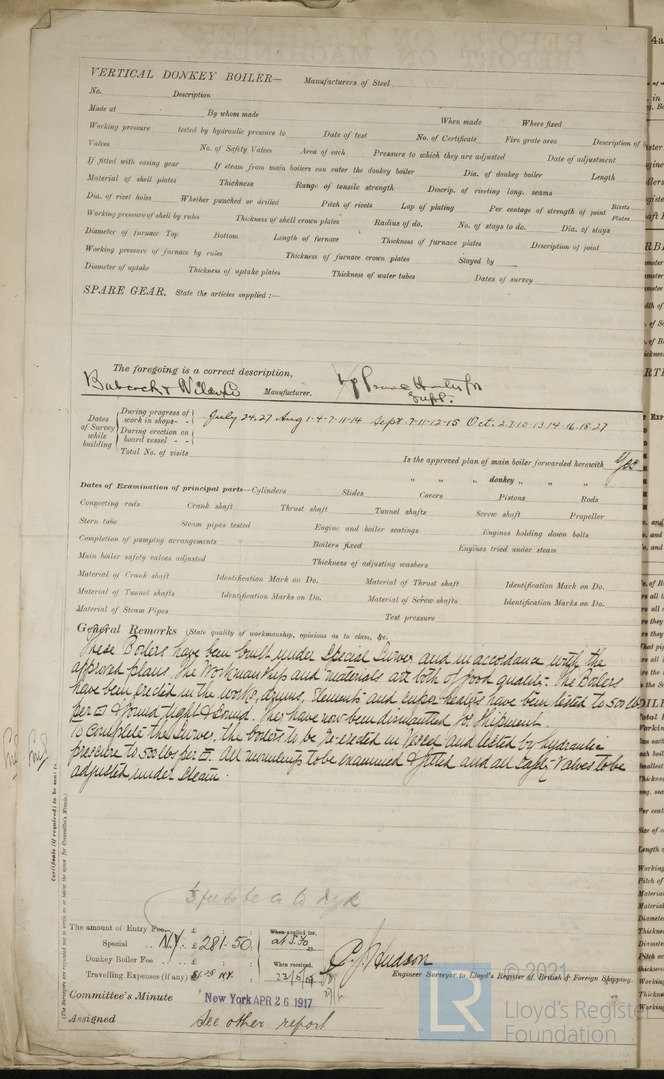 VERTICAL DONKEY BOILER— Manufacturers of Steel
No. Description
Made at By whom made When made Where fixed
Working pressure tested by hydraulic pressure to Date of test No. of Certificate Fire grate area Description of
Valves No. of Safety Valves Area of each Pressure to which they are adjusted Date of adjustment
If fitted with easing gear If steam from main boilers can enter the donkey boiler Dia. of donkey boiler Length
Material of shell plates Thickness Range of tensile strength Descrip. of riveting long. seams
Dia. of rivet holes Whether punched or drilled Pitch of rivets Lap of plating Per centage of strength of joint Rivets Plates
Working pressure of shell by rules Thickness of shell crown plates Radius of do. No. of stays to do. Dia. of stays
Diameter of furnace Top Bottom Length of furnace Thickness of furnace plates Description of joint
Working pressure of furnace by rules Thickness of furnace crown plates Stayed by
Diameter of uptake Thickness of uptake plates Thickness of water tubes Dates of survey
SPARE GEAR. State the articles supplied :—
The foregoing is a correct description,
Babcock & Wilcox Co Manufacturer. Supt.
Dates of Survey while building
During progress of work in shops - - July 24, 27 Aug 1-4-7-11-14 Sept. 7-11-12-15 Oct. 2-7-10-13-14-16-18-27
During erection on board vessel - -
Total No. of visits
Is the approved plan of main boiler forwarded herewith Yes
" " " donkey " " "
Dates of Examination of principal parts—Cylinders Slides Covers Pistons Rods
Connecting rods Crank shaft Thrust shaft Tunnel shafts Screw shaft Propeller
Stern tube Steam pipes tested Engine and boiler seatings Engines holding down bolts
Completion of pumping arrangements Boilers fixed Engines tried under steam
Main boiler safety valves adjusted Thickness of adjusting washers
Material of Crank shaft Identification Mark on Do. Material of Thrust shaft Identification Mark on Do.
Material of Tunnel shafts Identification Marks on Do. Material of Screw shafts Identification Marks on Do.
Material of Steam Pipes Test pressure
General Remarks (State quality of workmanship, opinions as to class, &c.
These Boilers have been built under Special Survey and in accordance with the
approved plans. The Workmanship and materials are both of good quality. The Boilers
have been erected in the works, drums, elements and super heaters have been tested to 500 lbs
per □ & found tight & sound. They have now been dismantled for Shipment.
To Complete the Survey, the boilers to be re-erected in Vessel and tested by hydraulic
pressure to 500 lbs per □. All mountings to be examined & fitted and all Safety Valves to be
adjusted under steam.
Certificate (if required) to be sent to
(The Surveyors are requested not to write on or below the space for Committee's Minute.)
The amount of Entry Fee £ : : When applied for,
Special N.Y. £ 281.50 : at S.No
Donkey Boiler Fee £ : : When received,
Travelling Expenses (if any) £
C. J. Hudson
Engineer Surveyor to Lloyd's Register of British & Foreign Shipping.
Committee's Minute New York APR 26 1917
Assigned See other report
© 2021
LR
Lloyd's Register
Foundation